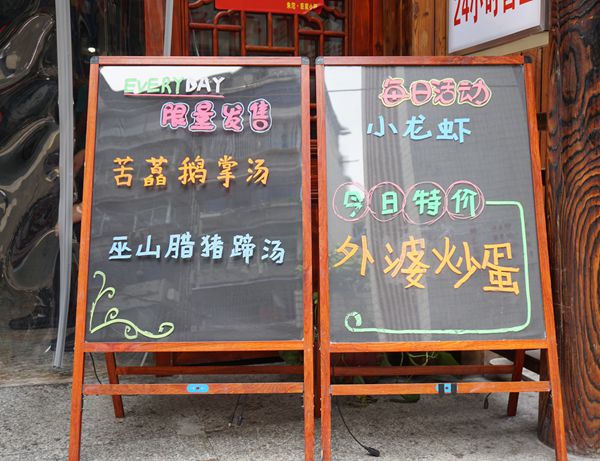 EVERYDAY
限量发售
苦藠鹅掌汤
巫山腊猪蹄汤
每日活动
小龙虾
今日特价
外婆炒蛋
24小时